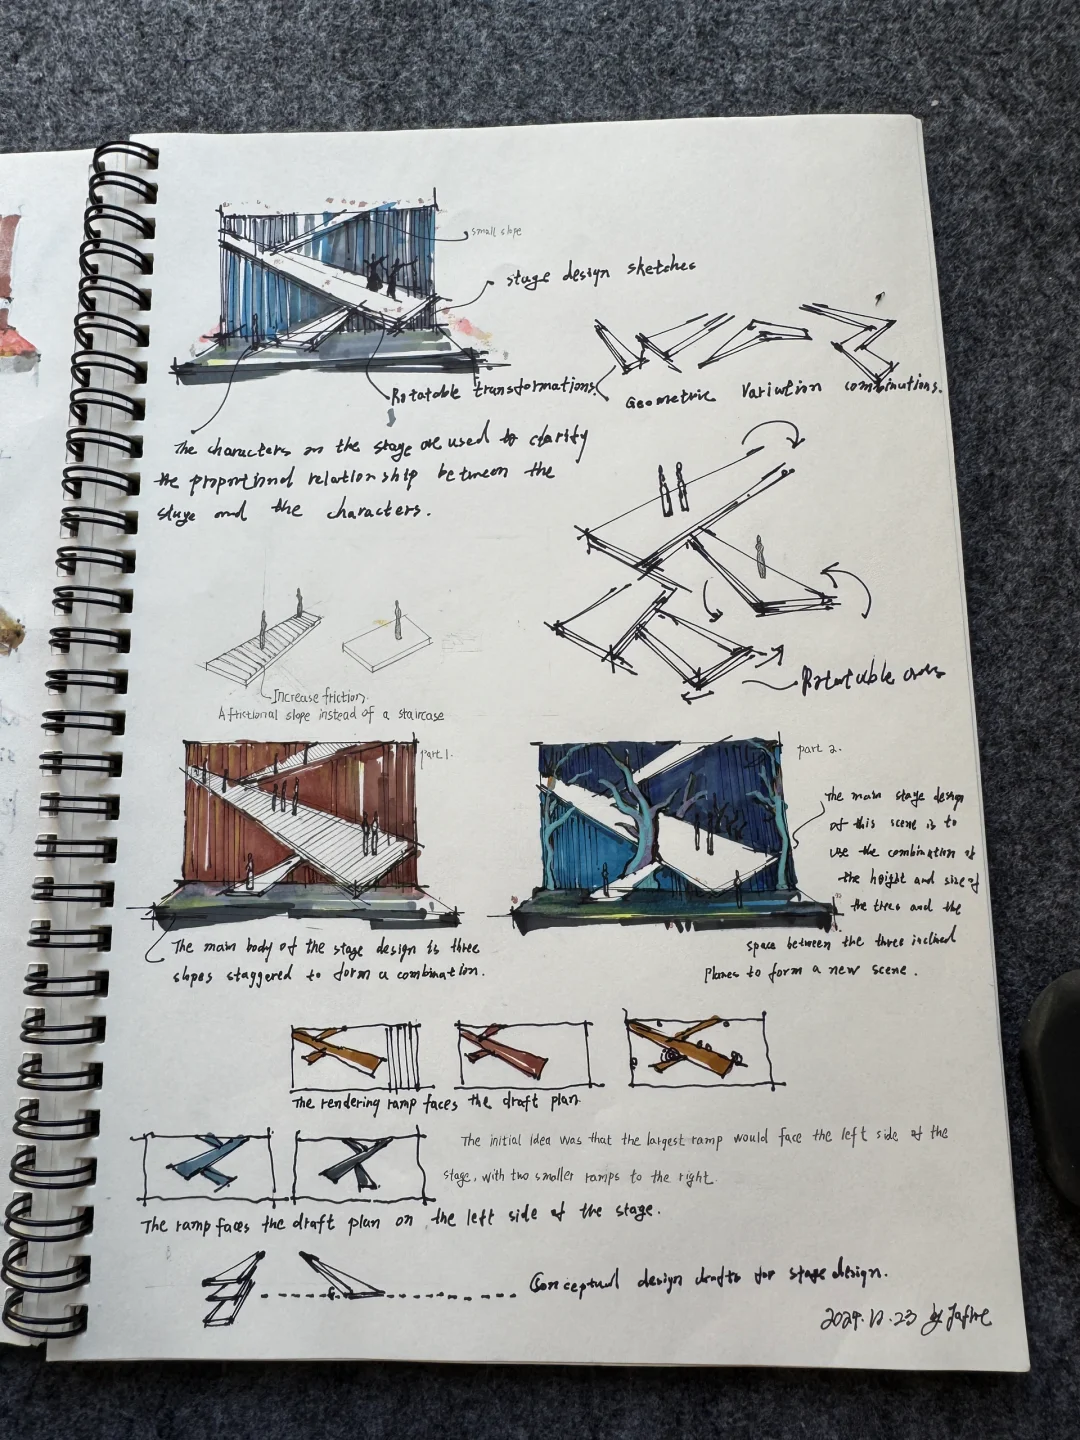 small slope
stage design sketches
Rotatable transformations.
Geometric Variation combinations.
The characters on the stage are used to clarify
the proportional relationship between the
stage and the characters.
Increase friction.
A frictional slope instead of a staircase
Rotatable
part 1.
part 2.
The main stage design
of this scene is to
use the combination of
the height and size of
the trees and the
space between the three inclined
planes to form a new scene.
The main body of the stage design is three
slopes staggered to form a combination.
The rendering ramp faces the draft plan
The initial idea was that the largest ramp would face the left side of the
stage, with two smaller ramps to the right.
The ramp faces the draft plan on the left side of the stage.
Conceptual design drafts for stage design.
2024.12.23 by